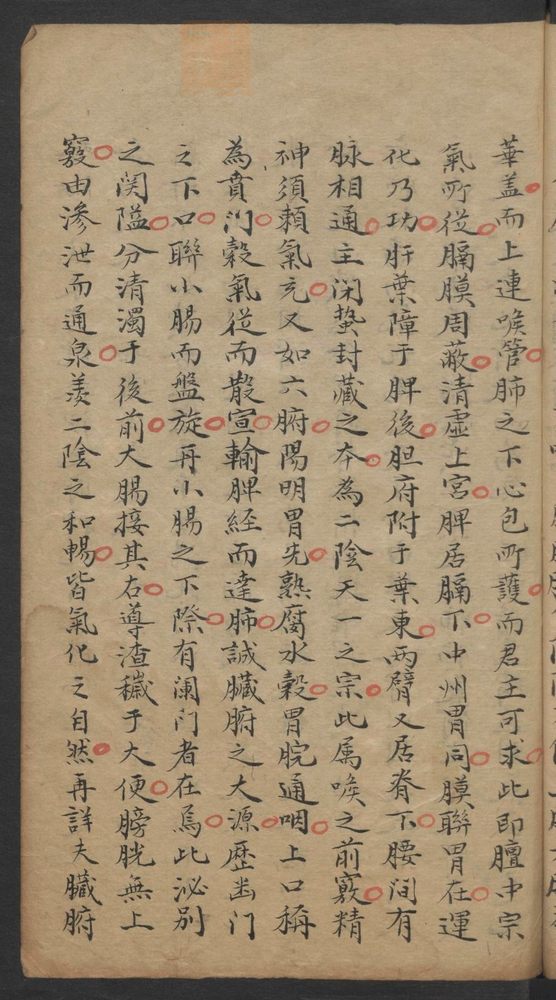 華盖而上連喉管肺之下心包所護而君主可求此即膻中宗
氣所從膈膜周蔽清虛上宮脾居膈下中州胃同膜聯胃在運
化乃功肝葉障于脾後胆府附于葉東兩臂又居脊下腰间有
脉相通主闭蟄封藏之夲為二陰天一之宗此属喉之前竅精
神須頼氣充又如六腑陽明胃先熟腐水穀胃脘通咽上口称
為賁門穀氣從而散宣輸脾經而達肺誠臟腑之大源歷幽门
之下口聯小腸而盤旋再小腸之下際有闌门者在焉此泌别
之関隘分清濁于後前大腸接其右導渣穢于大便膀胱無上
竅由滲泄而通泉羡二陰之和暢皆氣化之自然再詳夫臟腑